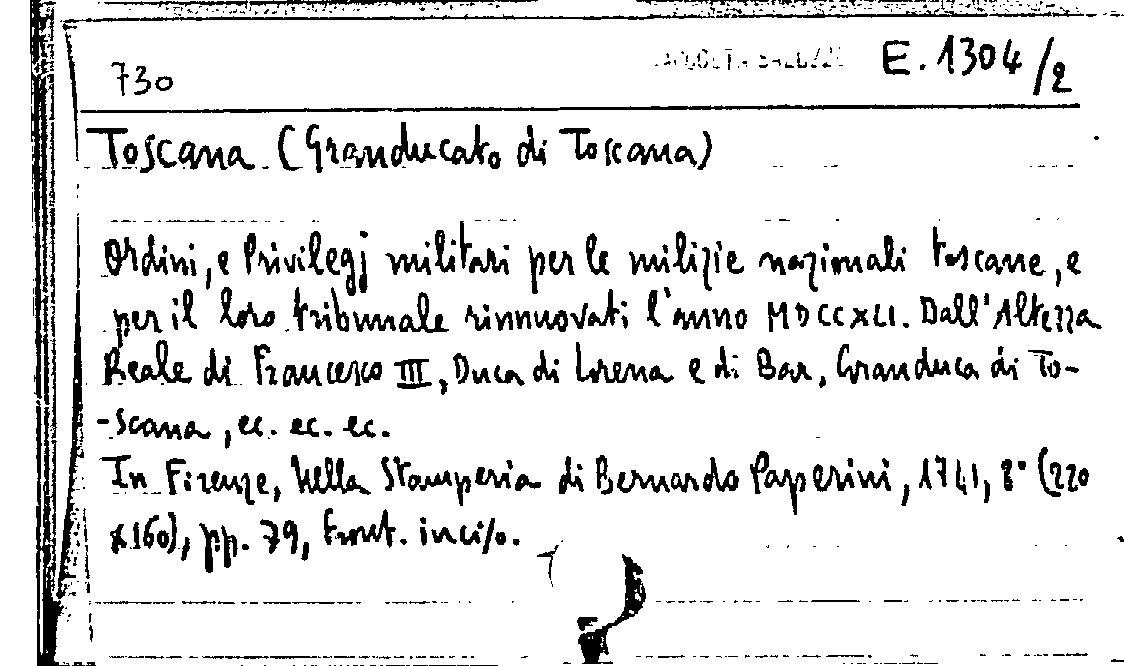 730 E. 1304/2
Toscana (Granducato di Toscana)
Ordini, e Privilegj militari per le milizie nazionali toscane, e
per il loro tribunale rinnuovati l'anno MDCCXLI. Dall'Altezza
Reale di Francesco III, Duca di Lorena e di Bar, Granduca di To-
-scana, ec. ec. ec.
In Firenze, Nella Stamperia di Bernardo Paperini, 1741, 8° (220
x160), pp. 79, Front. inciso.